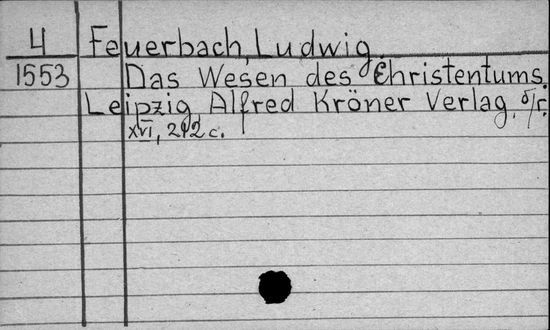 4 Feuerbach, Ludwig.
1553 Das Wesen des Christentums.
Leipzig Alfred Kröner Verlag, б/г.
XVI, 212 с.